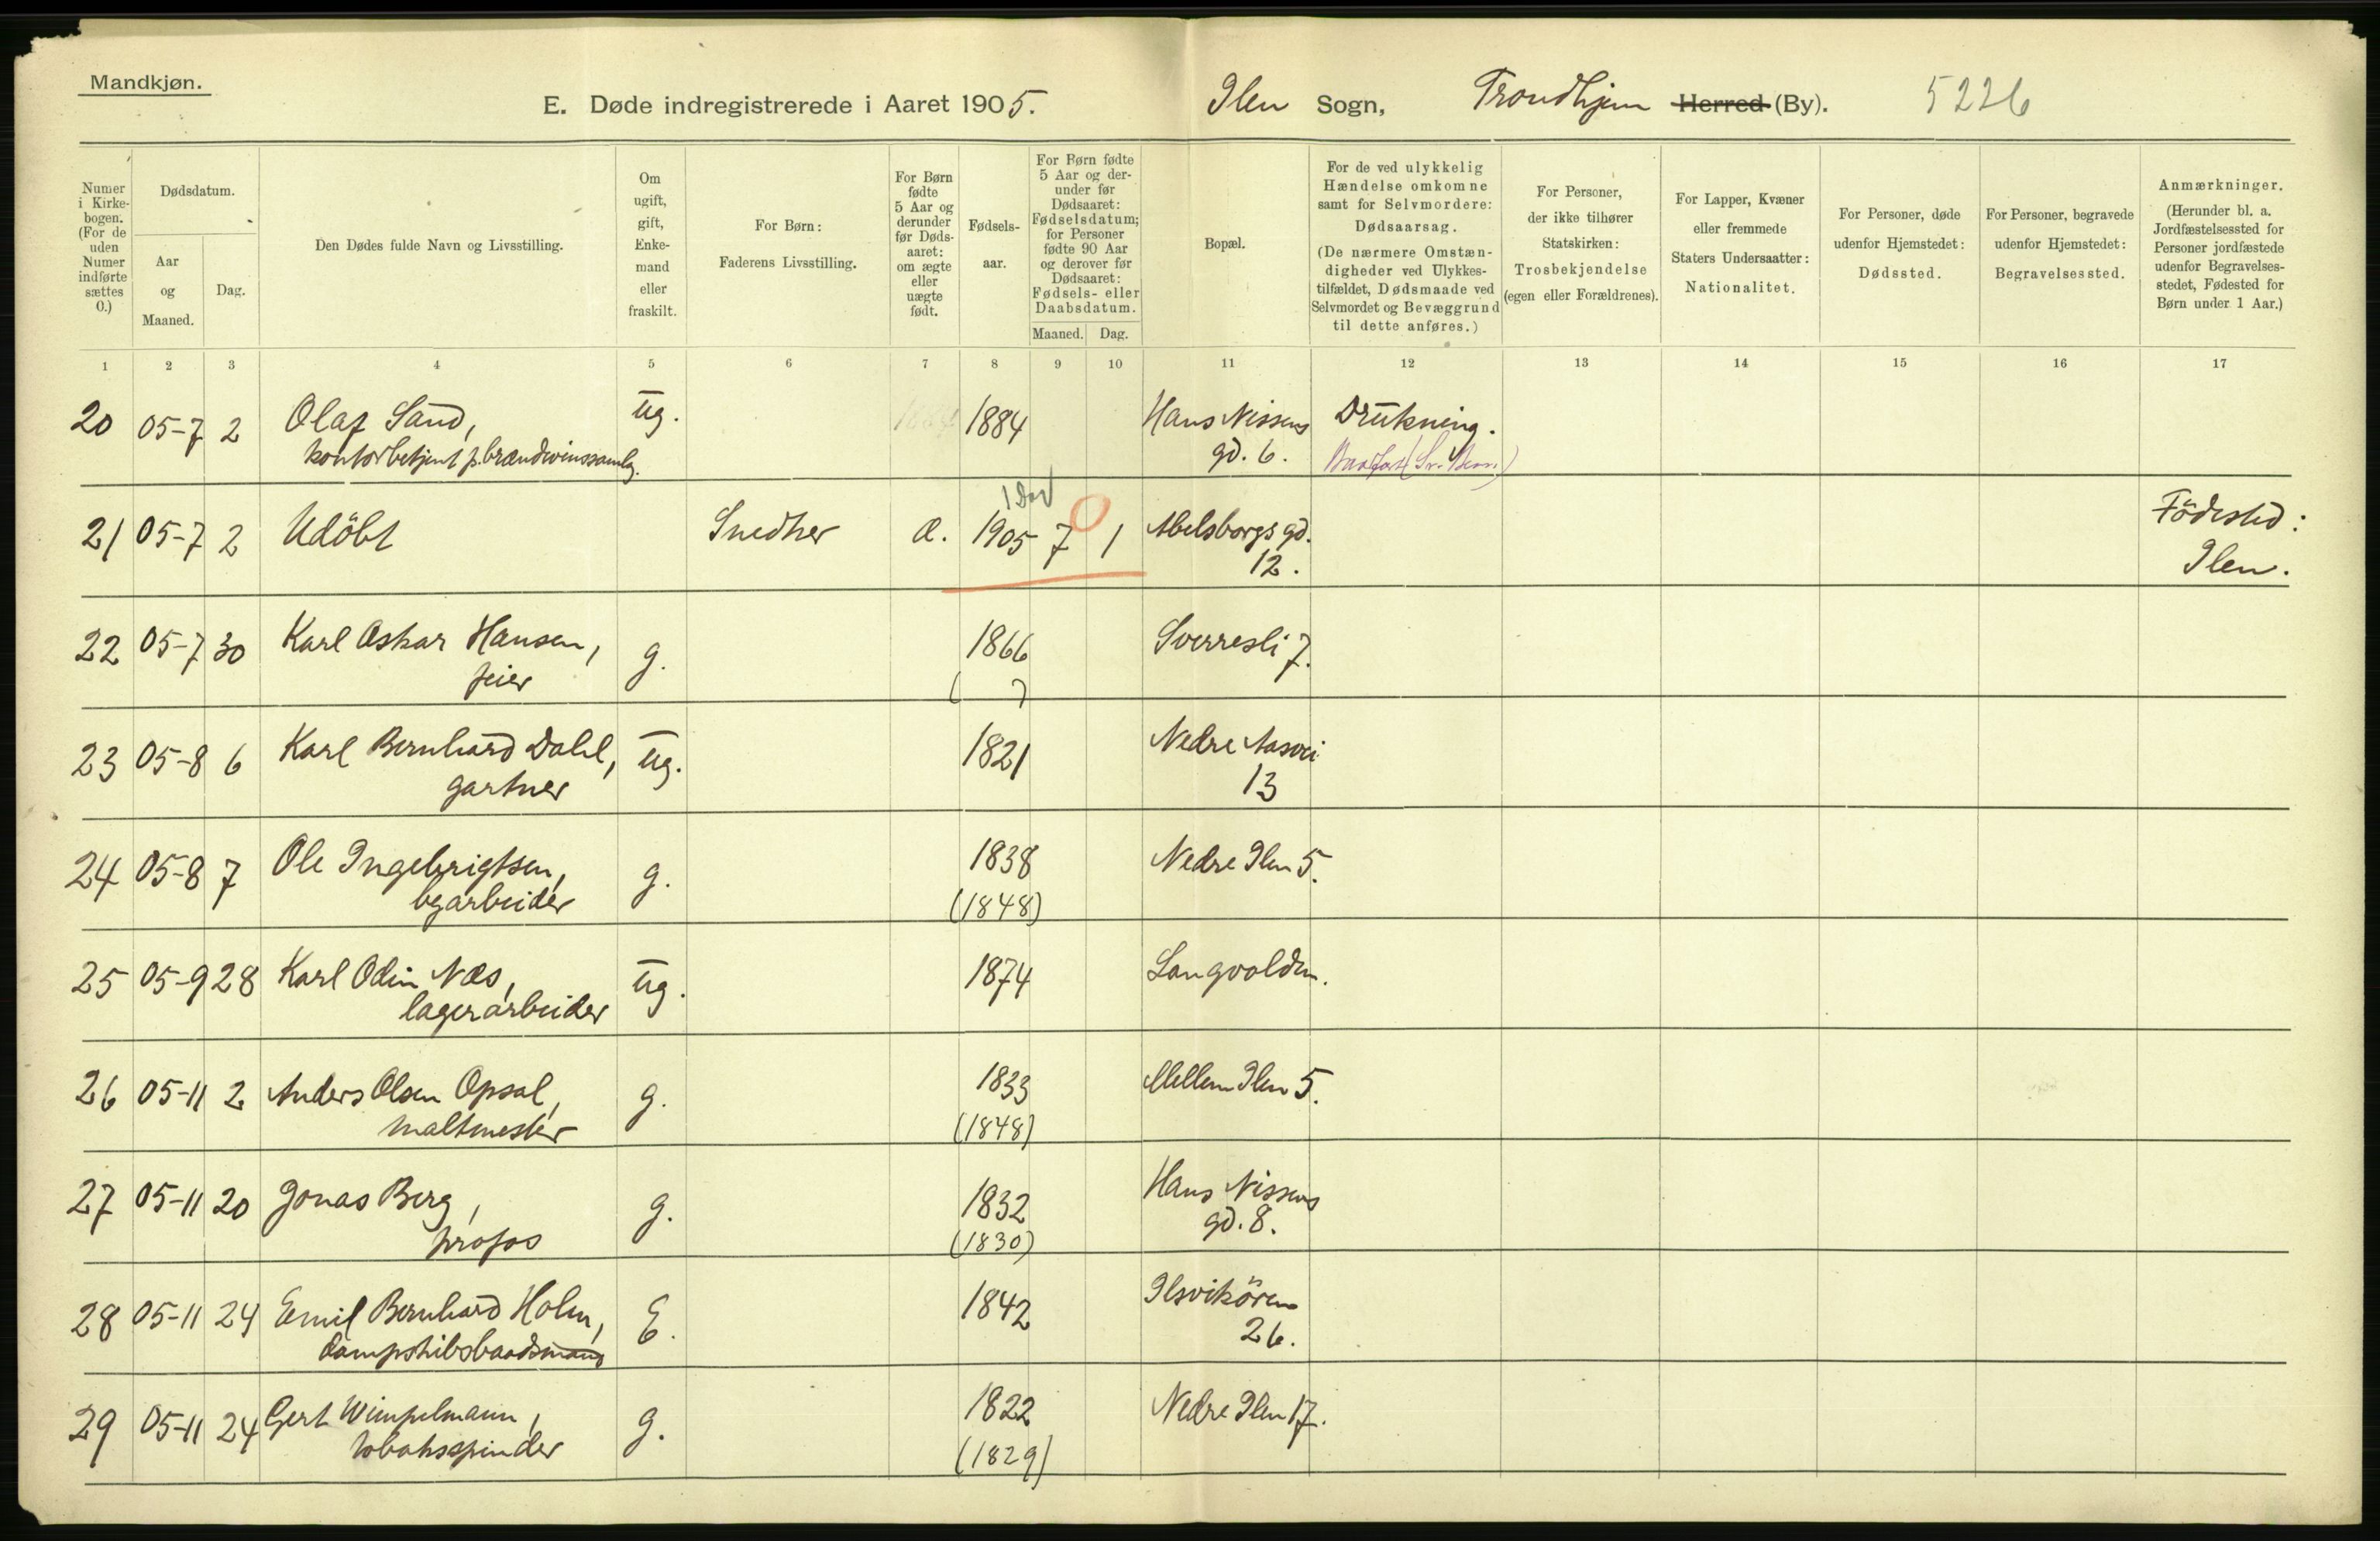 Mandkjøn.
E. Døde indregistrerede i Aaret 1905. Ilen Sogn, Trondhjem Herred (By). 5226
Numer i Kirkebogen. (For de uden Numer indførte sættes 0.)
Dødsdatum.
Aar og Maaned.
Dag.
Den Dødes fulde Navn og Livsstilling.
Om ugift, gift, Enkemand eller fraskilt.
For Børn: Faderens Livsstilling.
For Børn fødte 5 Aar og derunder før Dødsaaret: om ægte eller uægte født.
Fødselsaar.
For Børn fødte 5 Aar og derunder før Dødsaaret: Fødselsdatum; for Personer fødte 90 Aar og derover før Dødsaaret: Fødsels- eller Daabsdatum.
Maaned. Dag.
Bopæl.
For de ved ulykkelig Hændelse omkomne samt for Selvmordere: Dødsaarsag. (De nærmere Omstændigheder ved Ulykkestilfældet, Dødsmaade ved Selvmordet og Bevæggrund til dette anføres.)
For Personer, der ikke tilhører Statskirken: Trosbekjendelse (egen eller Forældrenes).
For Lapper, Kvæner eller fremmede Staters Undersaatter: Nationalitet.
For Personer, døde udenfor Hjemstedet: Dødssted.
For Personer, begravede udenfor Hjemstedet: Begravelsessted.
Anmærkninger. (Herunder bl. a. Jordfæstelsessted for Personer jordfæstede udenfor Begravelsesstedet, Fødested for Børn under 1 Aar.)
1 2 3 4 5 6 7 8 9 10 11 12 13 14 15 16 17
20 05-7 2 Olaf Sand, ug. 1884 Hans Nissens Drukning.
kontorbetjent p. brændevinssamlg. gd. 6.
1 Dag
21 05-7 2 Udöbt Snedker æ. 1905 7 0 1 Abelsborgs gd. Födested:
12. Ilen.
22 05-7 30 Karl Oskar Hansen, g. 1866 Sverresli 7.
feier ( )
23 05-8 6 Karl Bernhard Dahl, ug. 1821 Nedre Aasvei
gartner 13
24 05-8 7 Ole Ingebrigtsen, g. 1838 Nedre Ilen 5.
byarbeider (1848)
25 05-9 28 Karl Odin Næs, ug. 1874 Langvolden.
lagerarbeider
26 05-11 2 Anders Olsen Opsal, g. 1833 Mellem Ilen 5.
maltmester (1848)
27 05-11 20 Jonas Berg, g. 1832 Hans Nissens
profos (1830) gd. 8.
28 05-11 24 Emil Bernhard Holm, E. 1842 Ilsvikören
dampskibsbaadsmand 26.
29 05-11 24 Gert Wimpelmann, g. 1822 Nedre Ilen 17.
tobaksspinder (1829)